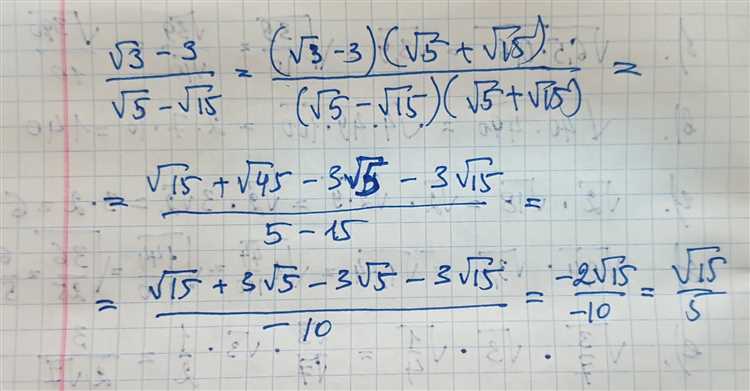 (√3 - 3)/(√5 - √15) = ((√3 - 3)(√5 + √15))/((√5 - √15)(√5 + √15)) =
= (√15 + √45 - 3√5 - 3√15)/(5 - 15) =
= (√15 + 3√5 - 3√5 - 3√15)/(-10) = (-2√15)/(-10) = √15/5